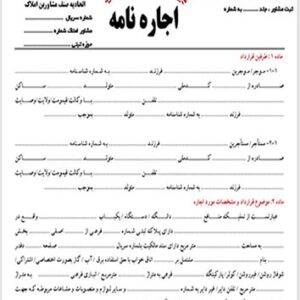 اتحادیه صنف مشاورین املاک
ثبت مشاور ، جلد ... به شماره
شماره سریال
اجاره نامه
مشاور املاک شماره
حوزه ثبتی
ماده ۱ : طرفین قرارداد
۱-۱- موجر / موجرین فرزند به شماره شناسنامه
صادره از کدملی متولد ساکن
تلفن با وکالت / قیمومت / ولایت / وصایت
بموجب
۲-۱- مستأجر / مستأجرین فرزند به شماره شناسنامه
صادره از کدملی متولد ساکن
تلفن با وکالت / قیمومت / ولایت / وصایت
بموجب
ماده ۲: موضوع قرارداد و مشخصات مورد اجاره
عبارتست از تملیک منافع دانگ / دستگاه / یکباب واقع در
دارای پلاک ثبتی شماره فرعی از اصلی بخش
به مساحت متر مربع دارای سند مالکیت بشماره سریال صفحه دفتر
بنام مشتمل بر اتاق خواب با حق استفاده برق / آب / گاز بصورت اختصاصی / اشتراکی /
شوفاژ روشن / غیرروشن / کولر / پارکینگ فرعی به متراژ متر مربع / انباری فرعی به متراژ
متر مربع / تلفن دایر / غیر دایر به شماره و سایر لوازم و منصوبات و مشاعات مربوطه که جهت